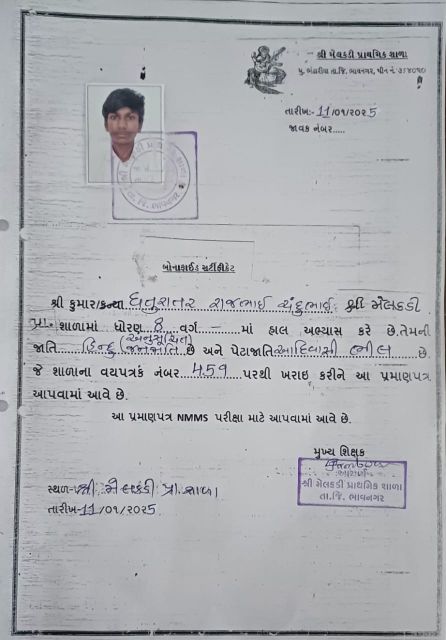 શ્રી મેલકડી પ્રાથમિક શાળા
મુ. ભંડારીયા તા.જિ. ભાવનગર, પીન નં.૩૬૪૦૫૦
તારીખ:- 11/01/2025
જાવક નંબર.....
બોનાફાઈડ સર્ટીફીકેટ
શ્રી કુમાર/કન્યા રાજભાઈ ચંદુભાઈ શ્રી મેલકડી
પ્રા. શાળામાં ધોરણ 8 વર્ગ - માં હાલ અભ્યાસ કરે છે.તેમની
જાતિ હિન્દુ (અનુસૂચિત જનજાતિ) છે અને પેટાજાતિ આદિવાસી ભીલ છે.
જે શાળાના વયપત્રક નંબર 459 પરથી ખરાઇ કરીને આ પ્રમાણપત્ર
આપવામાં આવે છે.
આ પ્રમાણપત્ર NMMS પરીક્ષા માટે આપવામાં આવે છે.
મુખ્ય શિક્ષક
આચાર્ય
શ્રી મેલકડી પ્રાથમિક શાળા
તા.જિ. ભાવનગર
સ્થળ:- શ્રી મેલકડી પ્રા. શાળા
તારીખ-11/01/2025